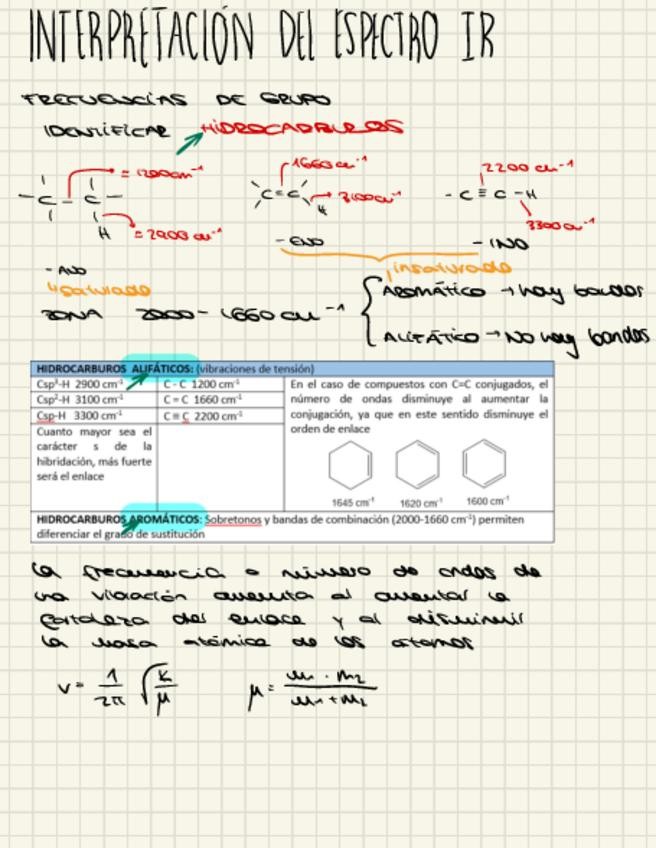 INTERPRETACIÓN DEL ESPECTRO IR
FRECUENCIAS DE GRUPO
IDENTIFICAR HIDROCARBUROS
= 1200cm⁻¹
1660 cm⁻¹
2200 cm⁻¹
- C - C -
C = C
3100cm⁻¹
- C ≡ C - H
H
= 2900 cm⁻¹
H
3300cm⁻¹
- ENO
- INO
- ANO
insaturado
saturado
AROMÁTICO → hay bandas
ZONA 2000 - 1660 cm⁻¹
ALIFÁTICO → NO hay bandas
HIDROCARBUROS ALIFÁTICOS: (vibraciones de tensión)
Csp³-H 2900 cm⁻¹
C - C 1200 cm⁻¹
Csp²-H 3100 cm⁻¹
C = C 1660 cm⁻¹
Csp-H 3300 cm⁻¹
C ≡ C 2200 cm⁻¹
En el caso de compuestos con C=C conjugados, el
número de ondas disminuye al aumentar la
conjugación, ya que en este sentido disminuye el
orden de enlace
Cuanto mayor sea el
carácter s de la
hibridación, más fuerte
será el enlace
1645 cm⁻¹ 1620 cm⁻¹ 1600 cm⁻¹
HIDROCARBUROS AROMÁTICOS: Sobretonos y bandas de combinación (2000-1660 cm⁻¹) permiten
diferenciar el grado de sustitución
la frecuencia o número de ondas de
una vibración aumenta al aumentar la
fortaleza del enlace y al disminuir
la masa atómica de los átomos
v = 1/2π √k/μ
μ = m₁ · m₂ / m₁ + m₂